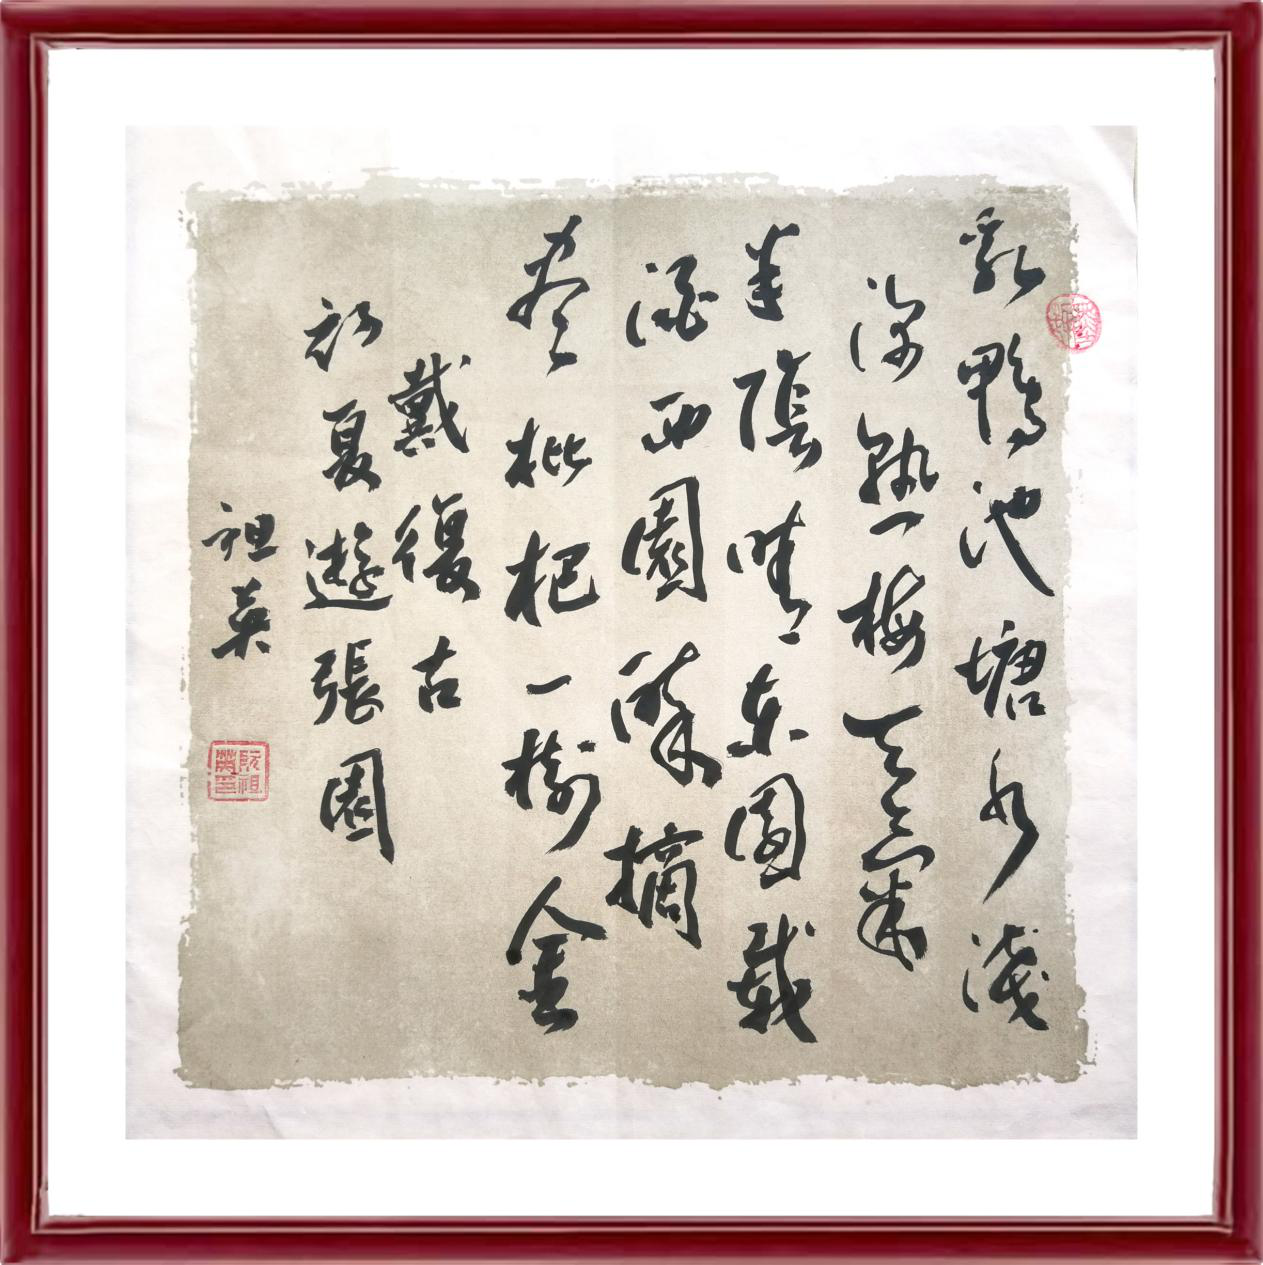 乳鴨池塘水淺
深熟梅天氣
半陰晴東園載
酒西園醉摘
盡枇杷一樹金
戴復古
初夏遊張園
祖英
阮祖英印